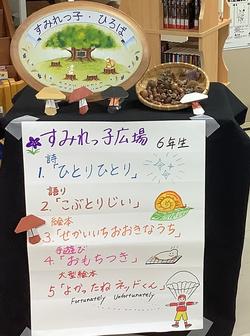 すみれっ子・ひろば
すみれっ子広場 6年生
詩
1.「ひとりひとり」
語り
2.「こぶとりじい」
絵本
3.「せかいいちおおきなうち」
手遊び
4.「おもちつき」
大型絵本
5「よかったねネッドくん」
Fortunately Unfortunately